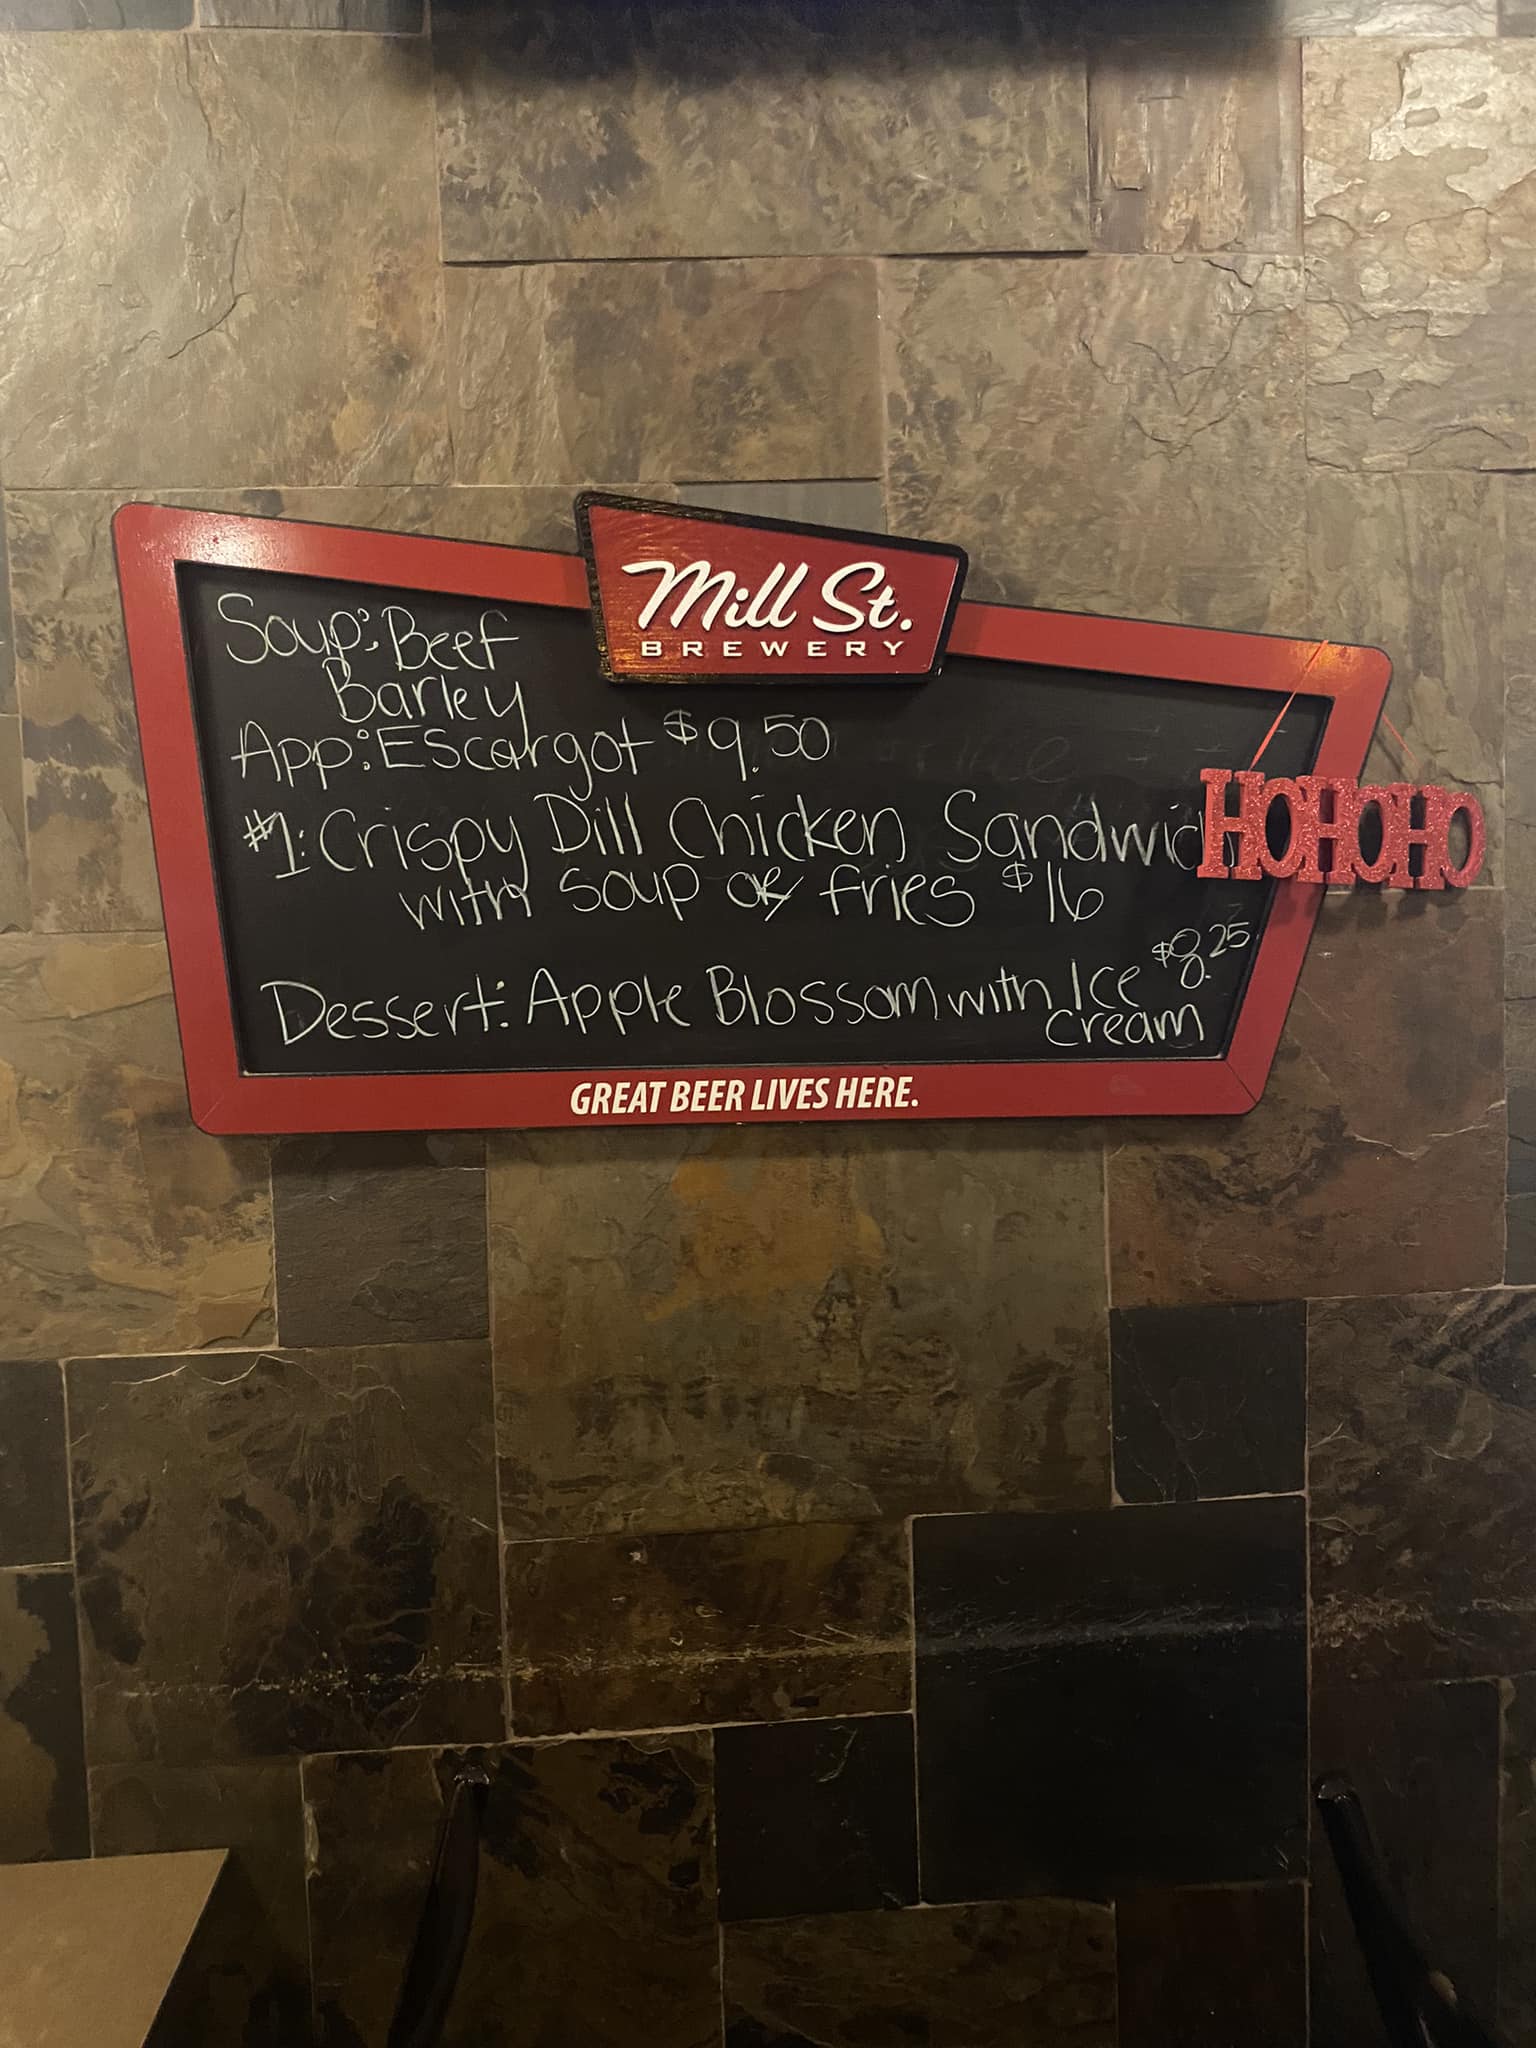 Mill St.
BREWERY
Soup: Beef
Barley
App: Escargot $9.50
#1: Crispy Dill Chicken Sandwic
with soup or fries $16
Dessert: Apple Blossom with Ice $8.25
cream
HOHOHO
GREAT BEER LIVES HERE.